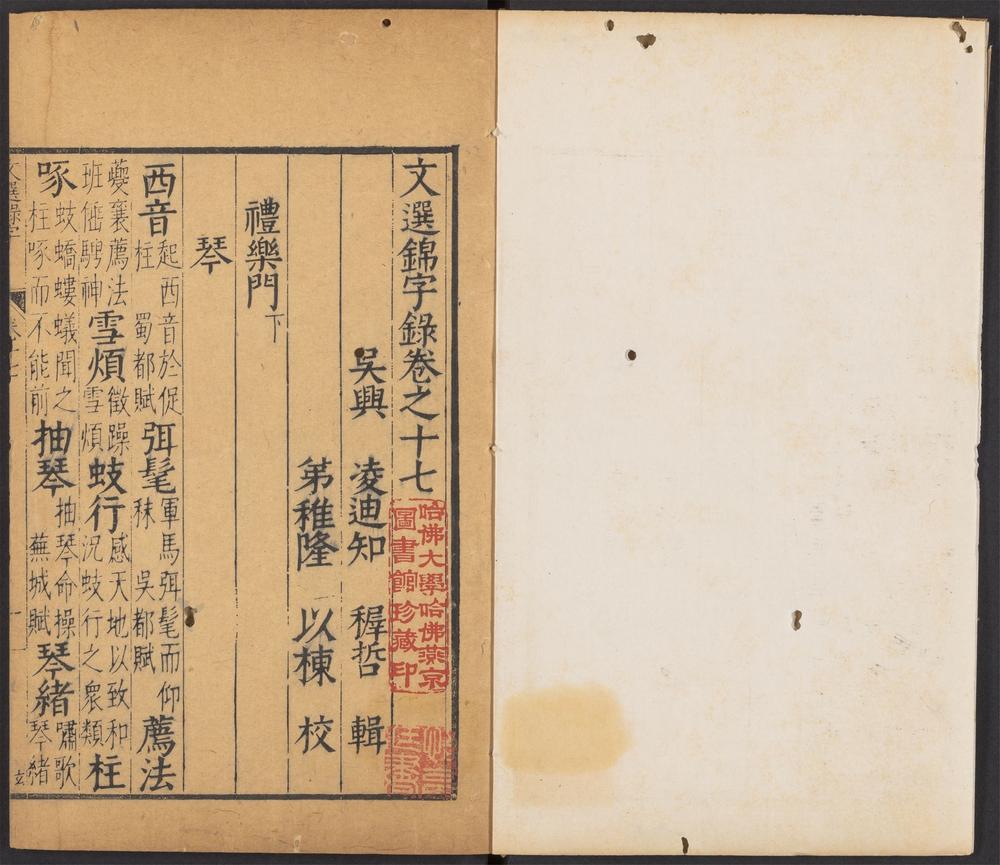 文選錦字錄卷之十七
吳興 凌迪知 穉哲 輯
弟稚隆 以棟 校
禮樂門下
琴
西音 起西音於促柱 蜀都賦 弭髦 軍馬弭髦而仰秣 吳都賦 薦法
夔襄薦法班倕騁神 雪煩 徵躁雪煩 蚑行 感天地以致和況蚑行之衆類 柱
啄 蚑蟜螻蟻聞之柱啄而不能前 抽琴 抽琴命操 蕪城賦 琴緒 嘯歌琴緒
哈佛大學哈佛燕京
圖書館珍藏印